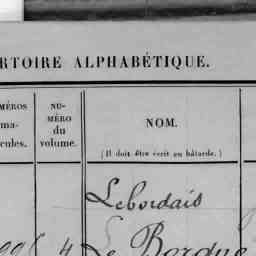 RTOIRE ALPHABÉTIQUE.
MÉROS
ma-
cules.
NU-
MÉRO
du
volume.
NOM.
(Il doit être écrit en bâtarde.)
Lebordais
4 Le